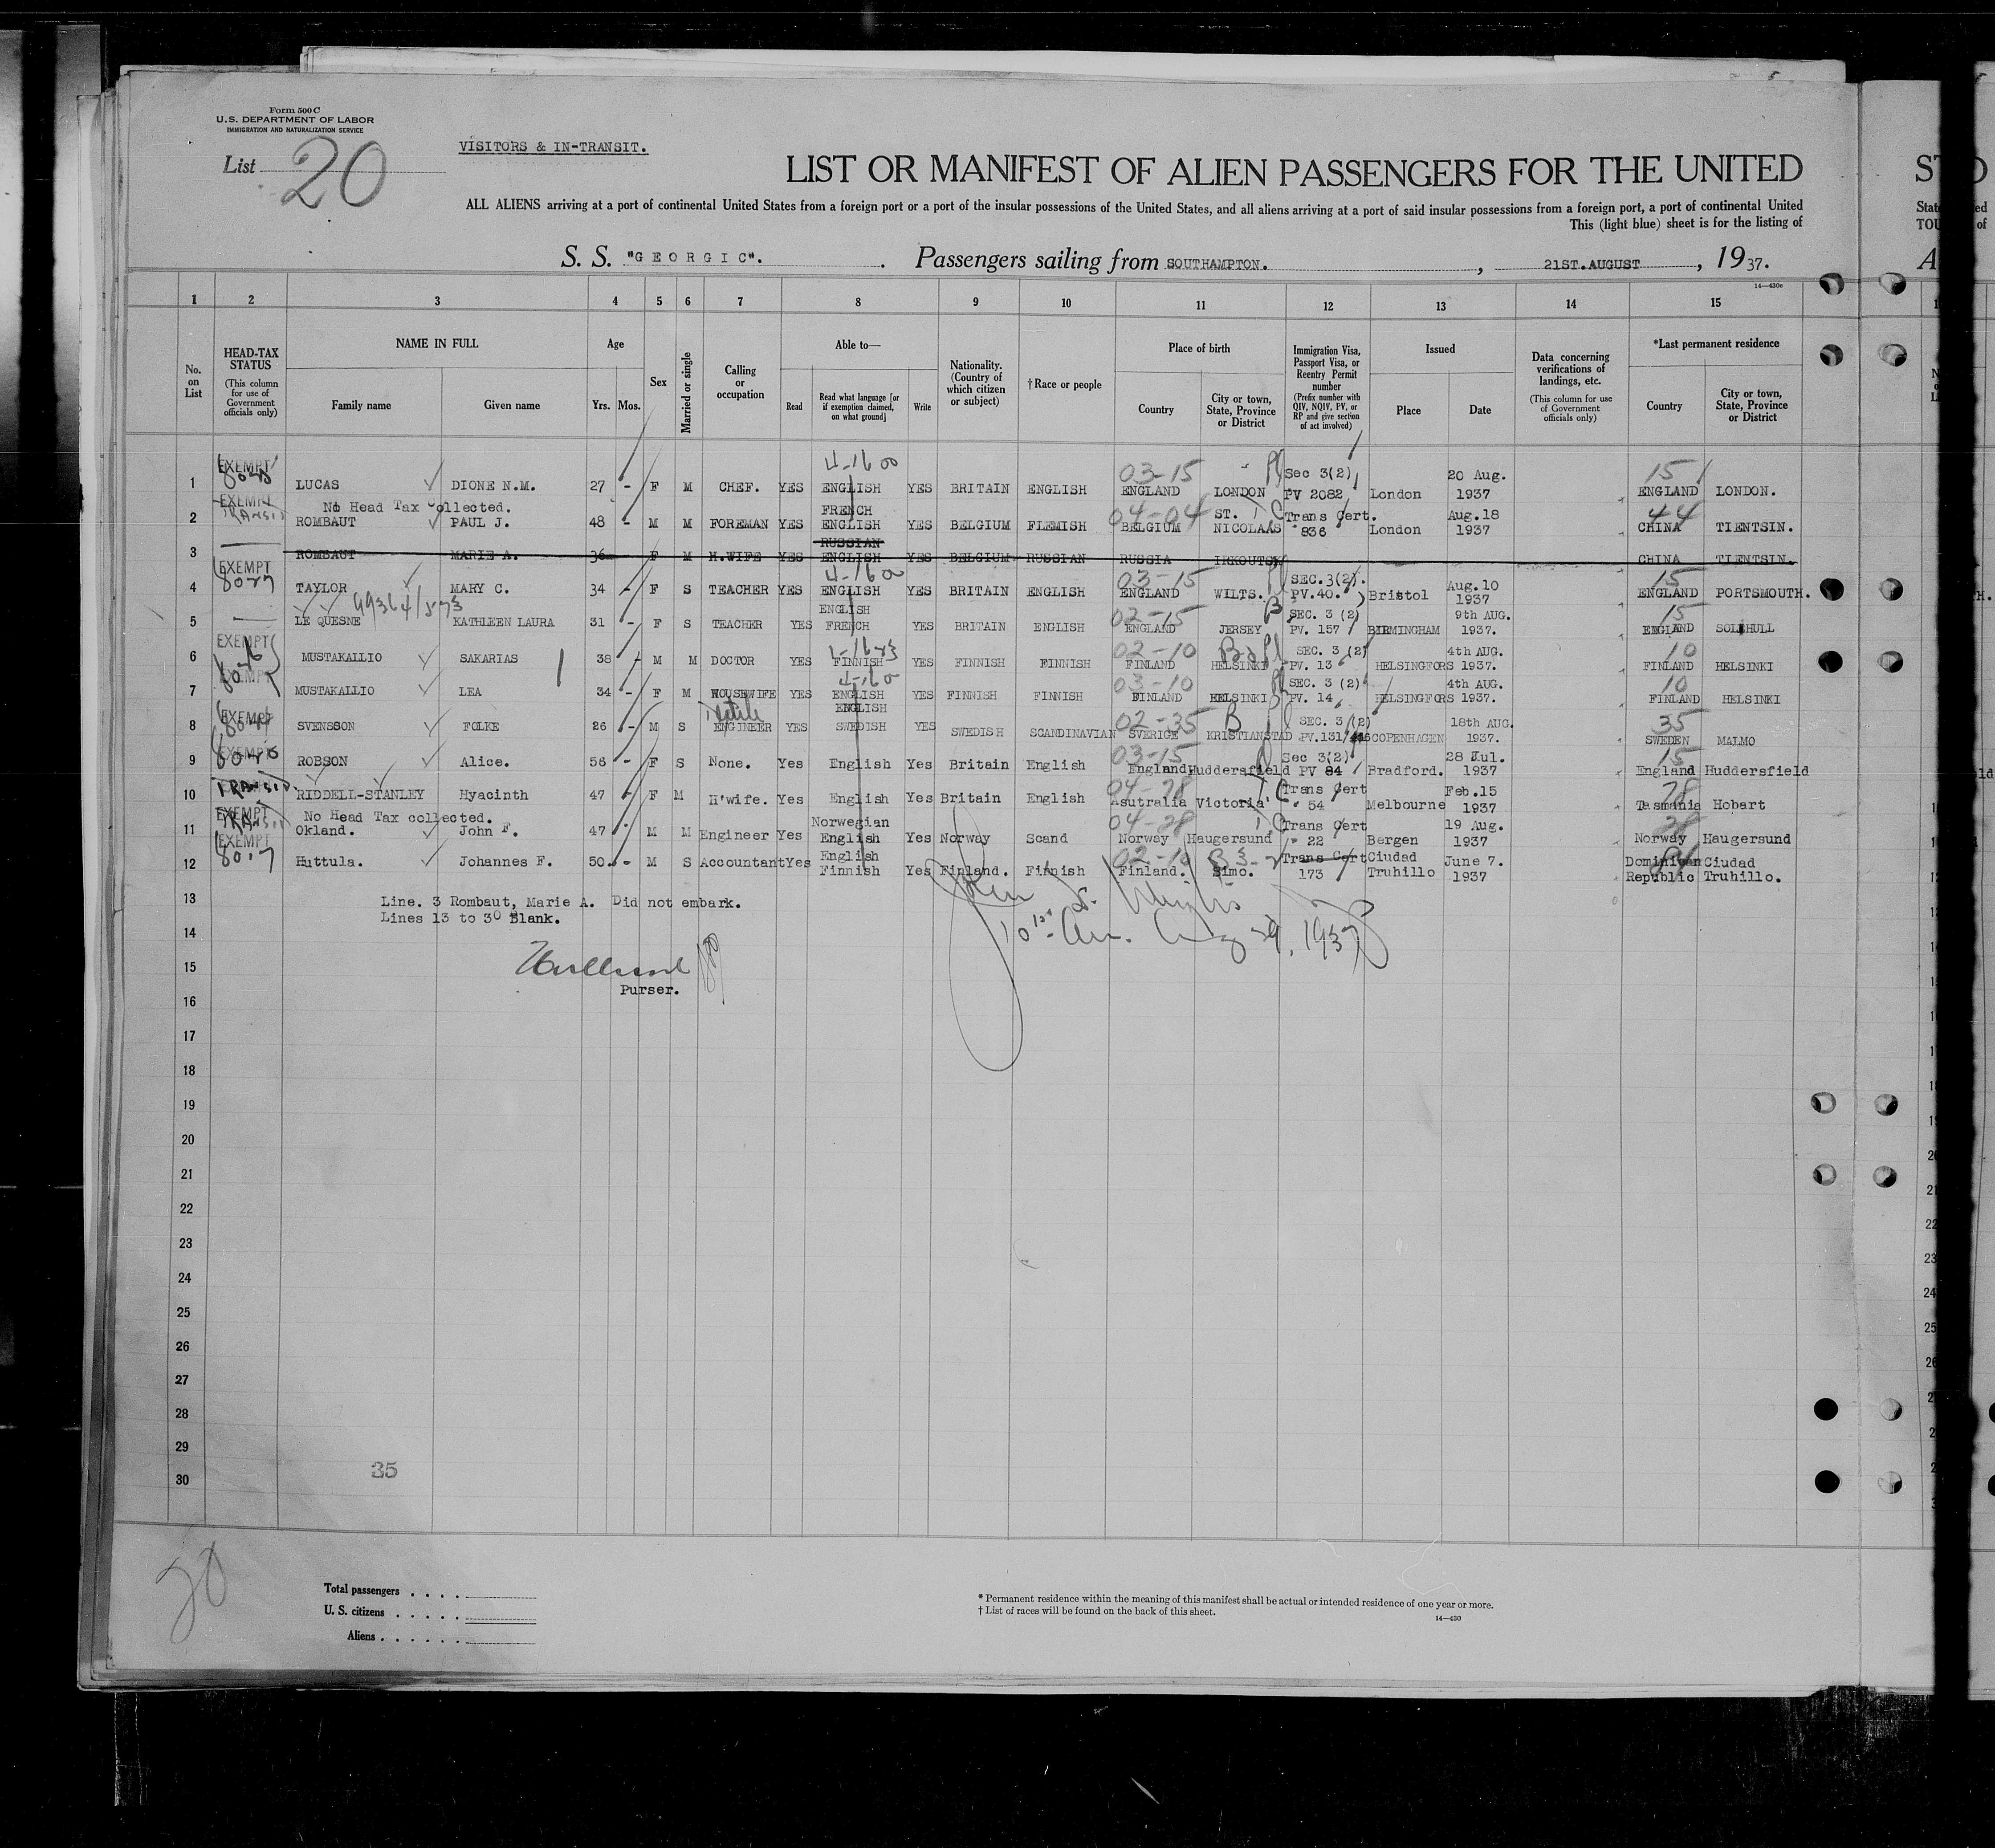 Form 500 C
U.S. DEPARTMENT OF LABOR
IMMIGRATION AND NATURALIZATION SERVICE
List 20
VISITORS & IN-TRANSIT.
LIST OR MANIFEST OF ALIEN PASSENGERS FOR THE UNITED
ALL ALIENS arriving at a port of continental United States from a foreign port or a port of the insular possessions of the United States, and all aliens arriving at a port of said insular possessions from a foreign port, a port of continental United
This (light blue) sheet is for the listing of
S. S. "GEORGIC". Passengers sailing from SOUTHAMPTON. , 21ST.AUGUST , 1937.
14—430e
1 2 3 4 5 6 7 8 9 10 11 12 13 14 15
No. on List
HEAD-TAX STATUS (This column for use of Government officials only)
NAME IN FULL
Family name Given name
Age
Yrs. Mos.
Sex
Married or single
Calling or occupation
Able to—
Read Read what language [or if exemption claimed, on what ground] Write
Nationality. (Country of which citizen or subject)
†Race or people
Place of birth
Country City or town, State, Province or District
Immigration Visa, Passport Visa, or Reentry Permit number (Prefix number with QIV, NQIV, PV, or RP and give section of act involved)
Issued
Place Date
Data concerning verifications of landings, etc. (This column for use of Government officials only)
*Last permanent residence
Country City or town, State, Province or District
EXEMPT 4-1600 03-15 Sec 3(2) 20 Aug. 15
1 LUCAS DIONE N.M. 27 - F M CHEF. YES ENGLISH YES BRITAIN ENGLISH ENGLAND LONDON PV 2082 London 1937 ENGLAND LONDON.
EXEMPT No Head Tax collected. FRENCH 04-04 ST. Trans Cert. Aug.18 44
2 TRANSIT ROMBAUT PAUL J. 48 - M M FOREMAN YES ENGLISH YES BELGIUM FLEMISH BELGIUM NICOLAAS 836 London 1937 CHINA TIENTSIN.
RUSSIAN
3 ROMBAUT MARIE A. 36 F M H.WIFE YES ENGLISH YES BELGIUM RUSSIAN RUSSIA IRKOUTSK CHINA TIENTSIN.
EXEMPT 4-1600 03-15 SEC.3(2). Aug.10 15
4 TAYLOR MARY C. 34 - F S TEACHER YES ENGLISH YES BRITAIN ENGLISH ENGLAND WILTS. PV.40. Bristol 1937 ENGLAND PORTSMOUTH.
99364/573 ENGLISH 02-15 SEC. 3 (2) 9th AUG. 15
5 LE QUESNE KATHLEEN LAURA 31 - F S TEACHER YES FRENCH YES BRITAIN ENGLISH ENGLAND JERSEY PV. 157 BIRMINGHAM 1937. ENGLAND SOLIHULL
EXEMPT 02-10 SEC. 3 (2) 4th AUG. 10
6 MUSTAKALLIO SAKARIAS 38 - M M DOCTOR YES FINNISH YES FINNISH FINNISH FINLAND HELSINKI PV. 13 HELSINGFORS 1937. FINLAND HELSINKI
EXEMPT 03-10 SEC. 3 (2) 4th AUG. 10
7 MUSTAKALLIO LEA 34 - F M HOUSEWIFE YES ENGLISH YES FINNISH FINNISH FINLAND HELSINKI PV. 14 HELSINGFORS 1937. FINLAND HELSINKI
EXEMPT Textile ENGLISH 02-35 B SEC. 3 (2) 18th AUG. 35
8 SVENSSON FOLKE 26 - M S ENGINEER YES SWEDISH YES SWEDISH SCANDINAVIAN SVERIGE KRISTIANSTAD PV.131/ COPENHAGEN 1937. SWEDEN MALMO
EXEMPT 03-15 Sec 3(2) 28 Jul. 15
9 ROBSON Alice. 56 - F S None. Yes English Yes Britain English England Huddersfield PV 84 Bradford. 1937 England Huddersfield
TRANSIT 04-78 Trans Cert Feb.15 78
10 RIDDELL-STANLEY Hyacinth 47 F M H'wife. Yes English Yes Britain English Asutralia Victoria 54 Melbourne 1937 Tasmania Hobart
EXEMPT TRANSIT No Head Tax collected. Norwegian 04-28 Trans Cert 19 Aug. 28
11 Okland. John F. 47 M M Engineer Yes English Yes Norway Scand Norway Haugersund 22 Bergen 1937 Norway Haugersund
EXEMPT English 02-10 Trans Cert Ciudad June 7. Dominican Ciudad
12 Huttula. Johannes F. 50 - M S Accountant Yes Finnish Yes Finland. Finnish Finland. Simo. 173 Truhillo 1937 Republic Truhillo.
13 Line. 3 Rombaut, Marie A. Did not embark.
Lines 13 to 30 Blank.
14
15
Purser.
16
17
18
19
20
21
22
23
24
25
26
27
28
29
30
35
20
Total passengers . . . .
U. S. citizens . . . . .
Aliens . . . . . .
* Permanent residence within the meaning of this manifest shall be actual or intended residence of one year or more.
† List of races will be found on the back of this sheet.
14—430